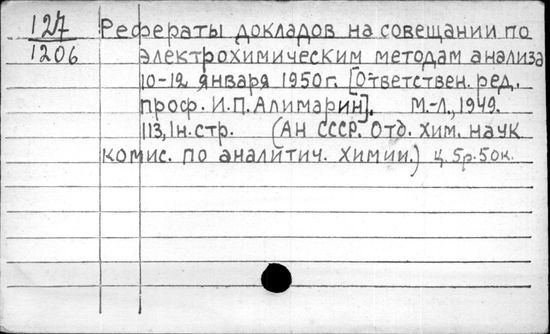 127 Рефераты докладов на совещании по
1206 электрохимическим методам анализа
10-12 января 1950г. [Ответствен. ред.
проф. И.П. Алимарин]. М.-Л., 1949.
113, 1н. стр. (АН СССР. Отд. хим. наук
комис. по аналитич. химии.) ц. 5р. 50к.